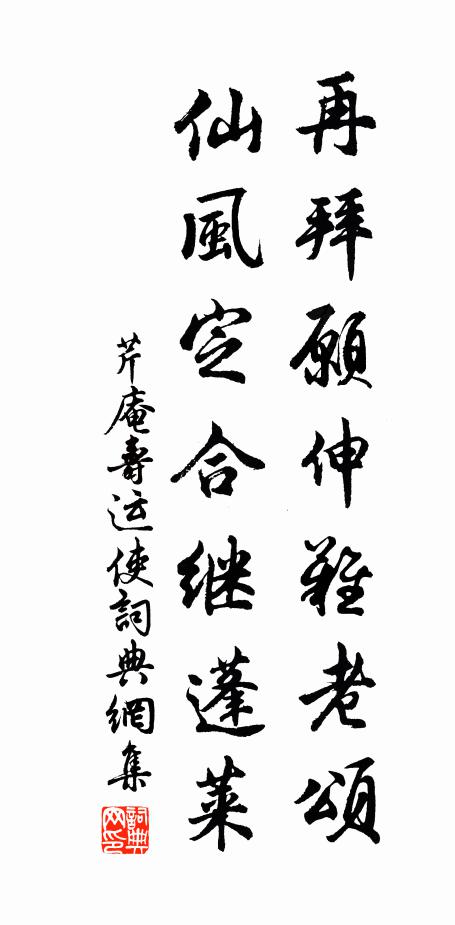 再拜願伸難老頌
仙風定合継蓬萊
芹庵壽运使詞典網集
詞典网印